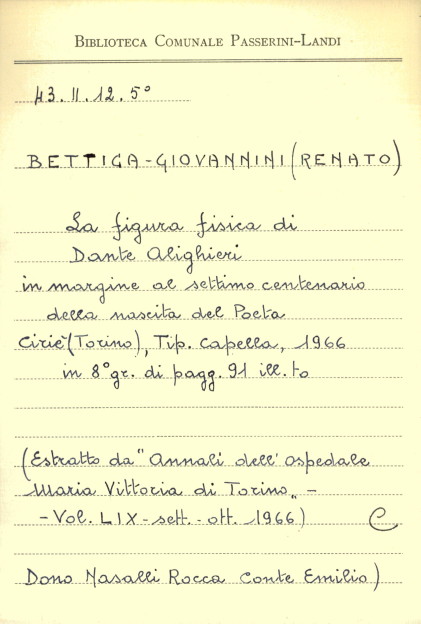 BIBLIOTECA COMUNALE PASSERINI-LANDI
43.II.12.5°
BETTICA-GIOVANNINI (RENATO)
La figura fisica di
Dante Alighieri
in margine al settimo centenario
della nascita del Poeta
Ciriè (Torino), Tip. Capella, 1966
in 8° gr. di pagg. 91 ill.to
(Estratto da "Annali dell'Ospedale
Maria Vittoria di Torino„ -
- Vol. LIX - sett. - ott. 1966)
C
Dono Nasalli Rocca Conte Emilio)